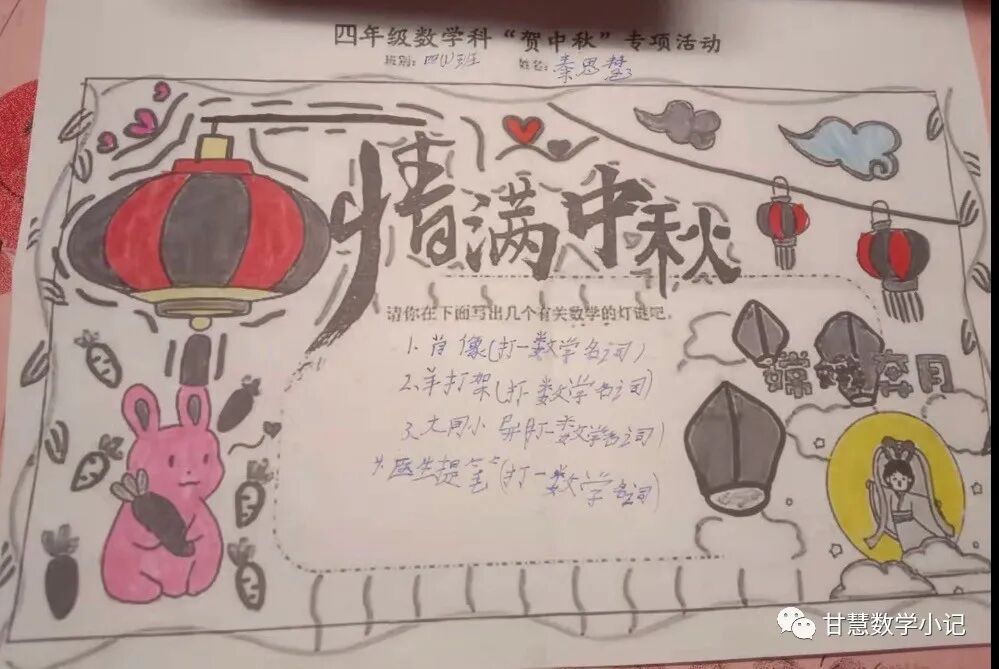 四年级数学科“贺中秋”专项活动
班别：四(1)班 姓名：秦思梦
情满中秋
请你在下面写出几个有关数学的灯谜吧。
1、肖像(打一数学名词)
2、羊打架(打一数学名词)
3、大同小异(打一数学名词)
4、医生提笔(打一数学名词)
甘慧数学小记